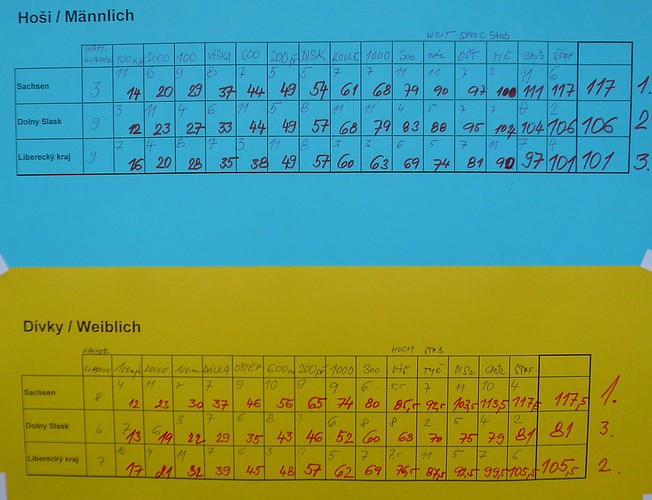 Hoši / Männlich
WEIT SPEER Stab
HAM. KLADIVO 100 př 2000 100 VÝŠKA 600 200 př DISK KOULE 1000 300 DÁL. OŠT TYČ CHŮZ ŠTAF
11 6 9 8 7 5 5 7 7 11 11 7 3 11 6
Sachsen 3 14 20 29 37 44 49 54 61 68 79 90 97 100 111 117 117 1.
3 11 4 6 11 5 8 11 11 4 5 7 7 2
Dolny Slask 9 12 23 27 33 44 49 57 68 79 83 88 95 102 104 106 106 2
7 4 8 7 3 11 8 3 3 6 5 7 7 4
Liberecký kraj 9 16 20 28 35 38 49 57 60 63 69 74 81 90 97 101 101 3.
Dívky / Weiblich
HOCH STAB
HAMMER KLADIVO 100 mpř KOULE 100 m DÁLKA OŠTĚP 600 m 200 př 1000 300 VÝŠ TYČ DISK CHŮZ ŠTAF
4 11 7 7 9 10 9 9 6 5,5 7 11 10 4
Sachsen 8 12 23 30 37 46 56 65 74 80 85,5 92,5 103,5 113,5 117,5 117,5 1.
7 6 3 7 6 8 3 6 8 8 2 5 4 2
Dolny Slask 6 13 19 22 29 35 43 46 52 60 68 70 75 79 81 81 3.
10 4 11 7 6 3 9 5 7 7,5 11 5 7 6
Liberecký kraj 7 17 21 32 39 45 48 57 62 69 76,5 87,5 92,5 99,5 105,5 105,5 2.